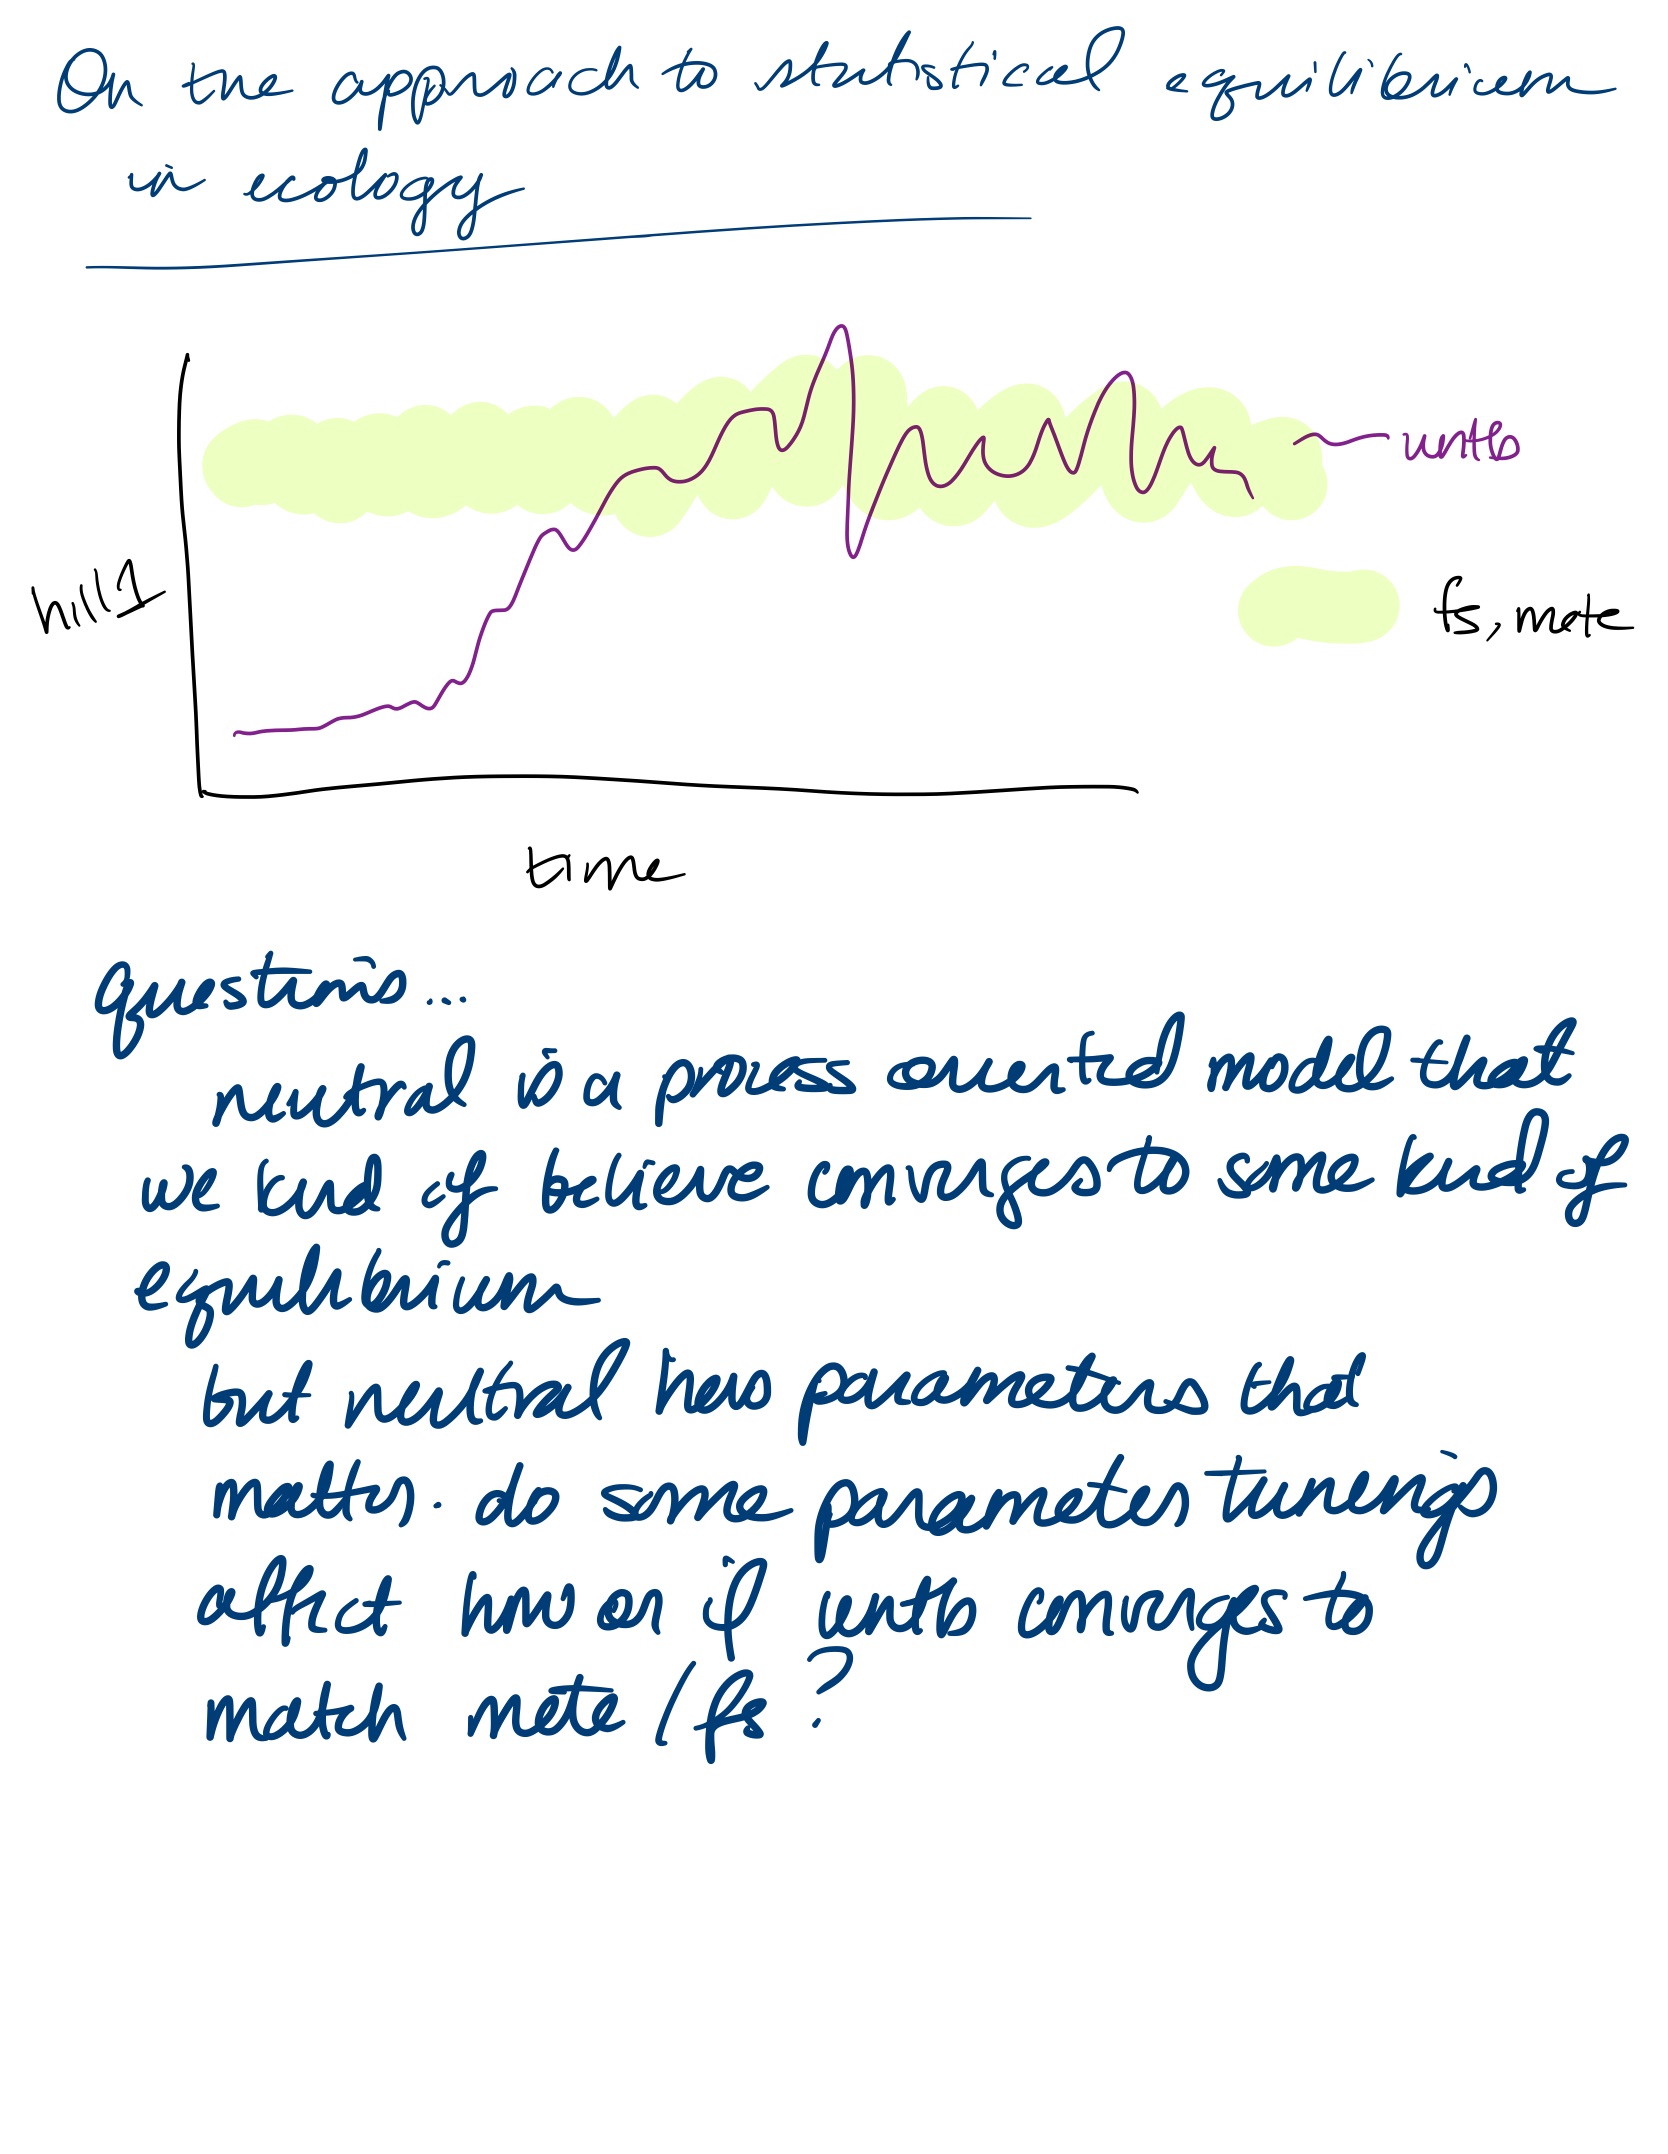 On the approach to statistical equilibrium
in ecology
untb
hill1
fs, mete
time
questions...
neutral is a process oriented model that
we kind of believe converges to some kind of
equilibrium
but neutral has parameters that
matter. do some parameter tunings
affect how or if untb converges to
match mete/fs?